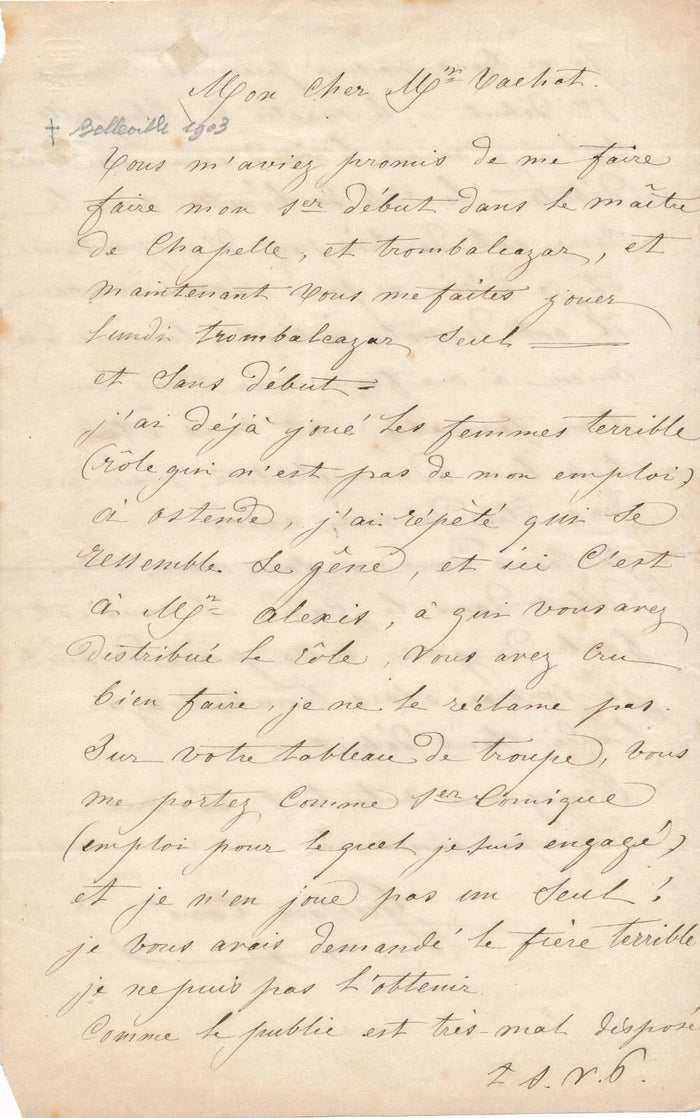 Mon cher Mr Vachot.
† Belleville 1903
Vous m'aviez promis de me faire
faire mon 1er début dans le maître
de Chapelle, et trombalcazar, et
maintenant vous me faites jouer
lundi trombalcazar seul —
et sans début =
j'ai déjà joué les femmes terrible
(rôle qui n'est pas de mon emploi)
à ostende, j'ai répèté qui se
ressemble se gêne, et ici c'est
à Mr alexis, à qui vous avez
distribué le rôle, vous avez cru
bien faire, je ne le réclame pas.
Sur votre tableau de troupe, vous
me portez comme 1er Comique
(emploi pour le quel je suis engagé)
et je n'en joue pas un seul !
je vous avais demandé le fière terrible
je ne puis pas l'obtenir
Comme le public est très mal disposé
T. S. V. P.